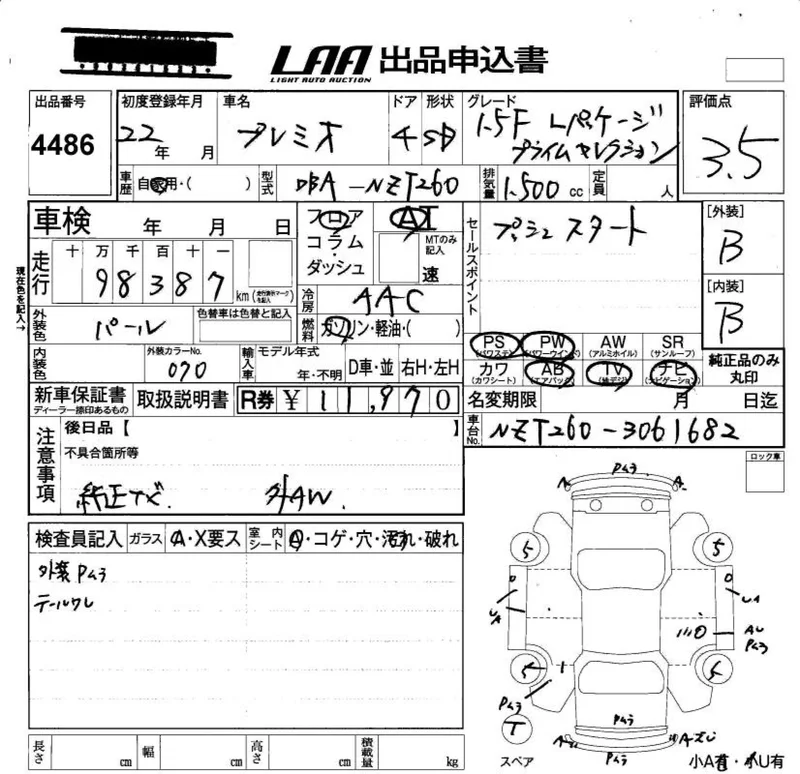 LAA 出品申込書
LIGHT AUTO AUCTION
出品番号
4486
初度登録年月
22年 月
車名
プレミオ
ドア
4
形状
SD
グレード
1.5F Lパケージ
プライムセレクション
評価点
3.5
車歴
自家用・( )
型式
DBA-NZT260
排気量
1.500cc
定員
人
車検 年 月 日
フロア
コラム・
ダッシュ
AT
MTのみ記入
速
セールスポイント
プッシュスタート
[外装]
B
[内装]
B
現在色を記入→
走行
十 万 千 百 十 一
98387
km (走行距離マークを記入)
冷房
AAC
燃料
ガソリン・軽油・( )
外装色
パール
色替車は色替と記入
PS (パワステ)
PW (パワーウインド)
AW (アルミホイル)
SR (サンルーフ)
カワ (カワシート)
AB (エアバック)
TV (地デジ)
ナビ (ナビゲーション)
純正品のみ丸印
内装色
外装カラーNo.
070
輸入車
モデル年式
年・不明
D車・並
右H・左H
新車保証書
ディーラー捺印あるもの
取扱説明書
R券 ¥ 11,970
名変期限 月 日迄
車台No.
NZT260-3061682
注意事項
後日品【 】
不具合箇所等
純正ナビ 外AW.
ロック車
検査員記入
ガラス
A・X要ス
室内シート
A・コゲ・穴・汚れ・破れ
外装Pムラ
テールワレ
Pムラ
A
A
5
5
UA
UA
AU
Pムラ
5
5
Pムラ
T
スペア
Pムラ
Pムラ
小A有・小U有
長さ cm
幅 cm
高さ cm
積載量 kg